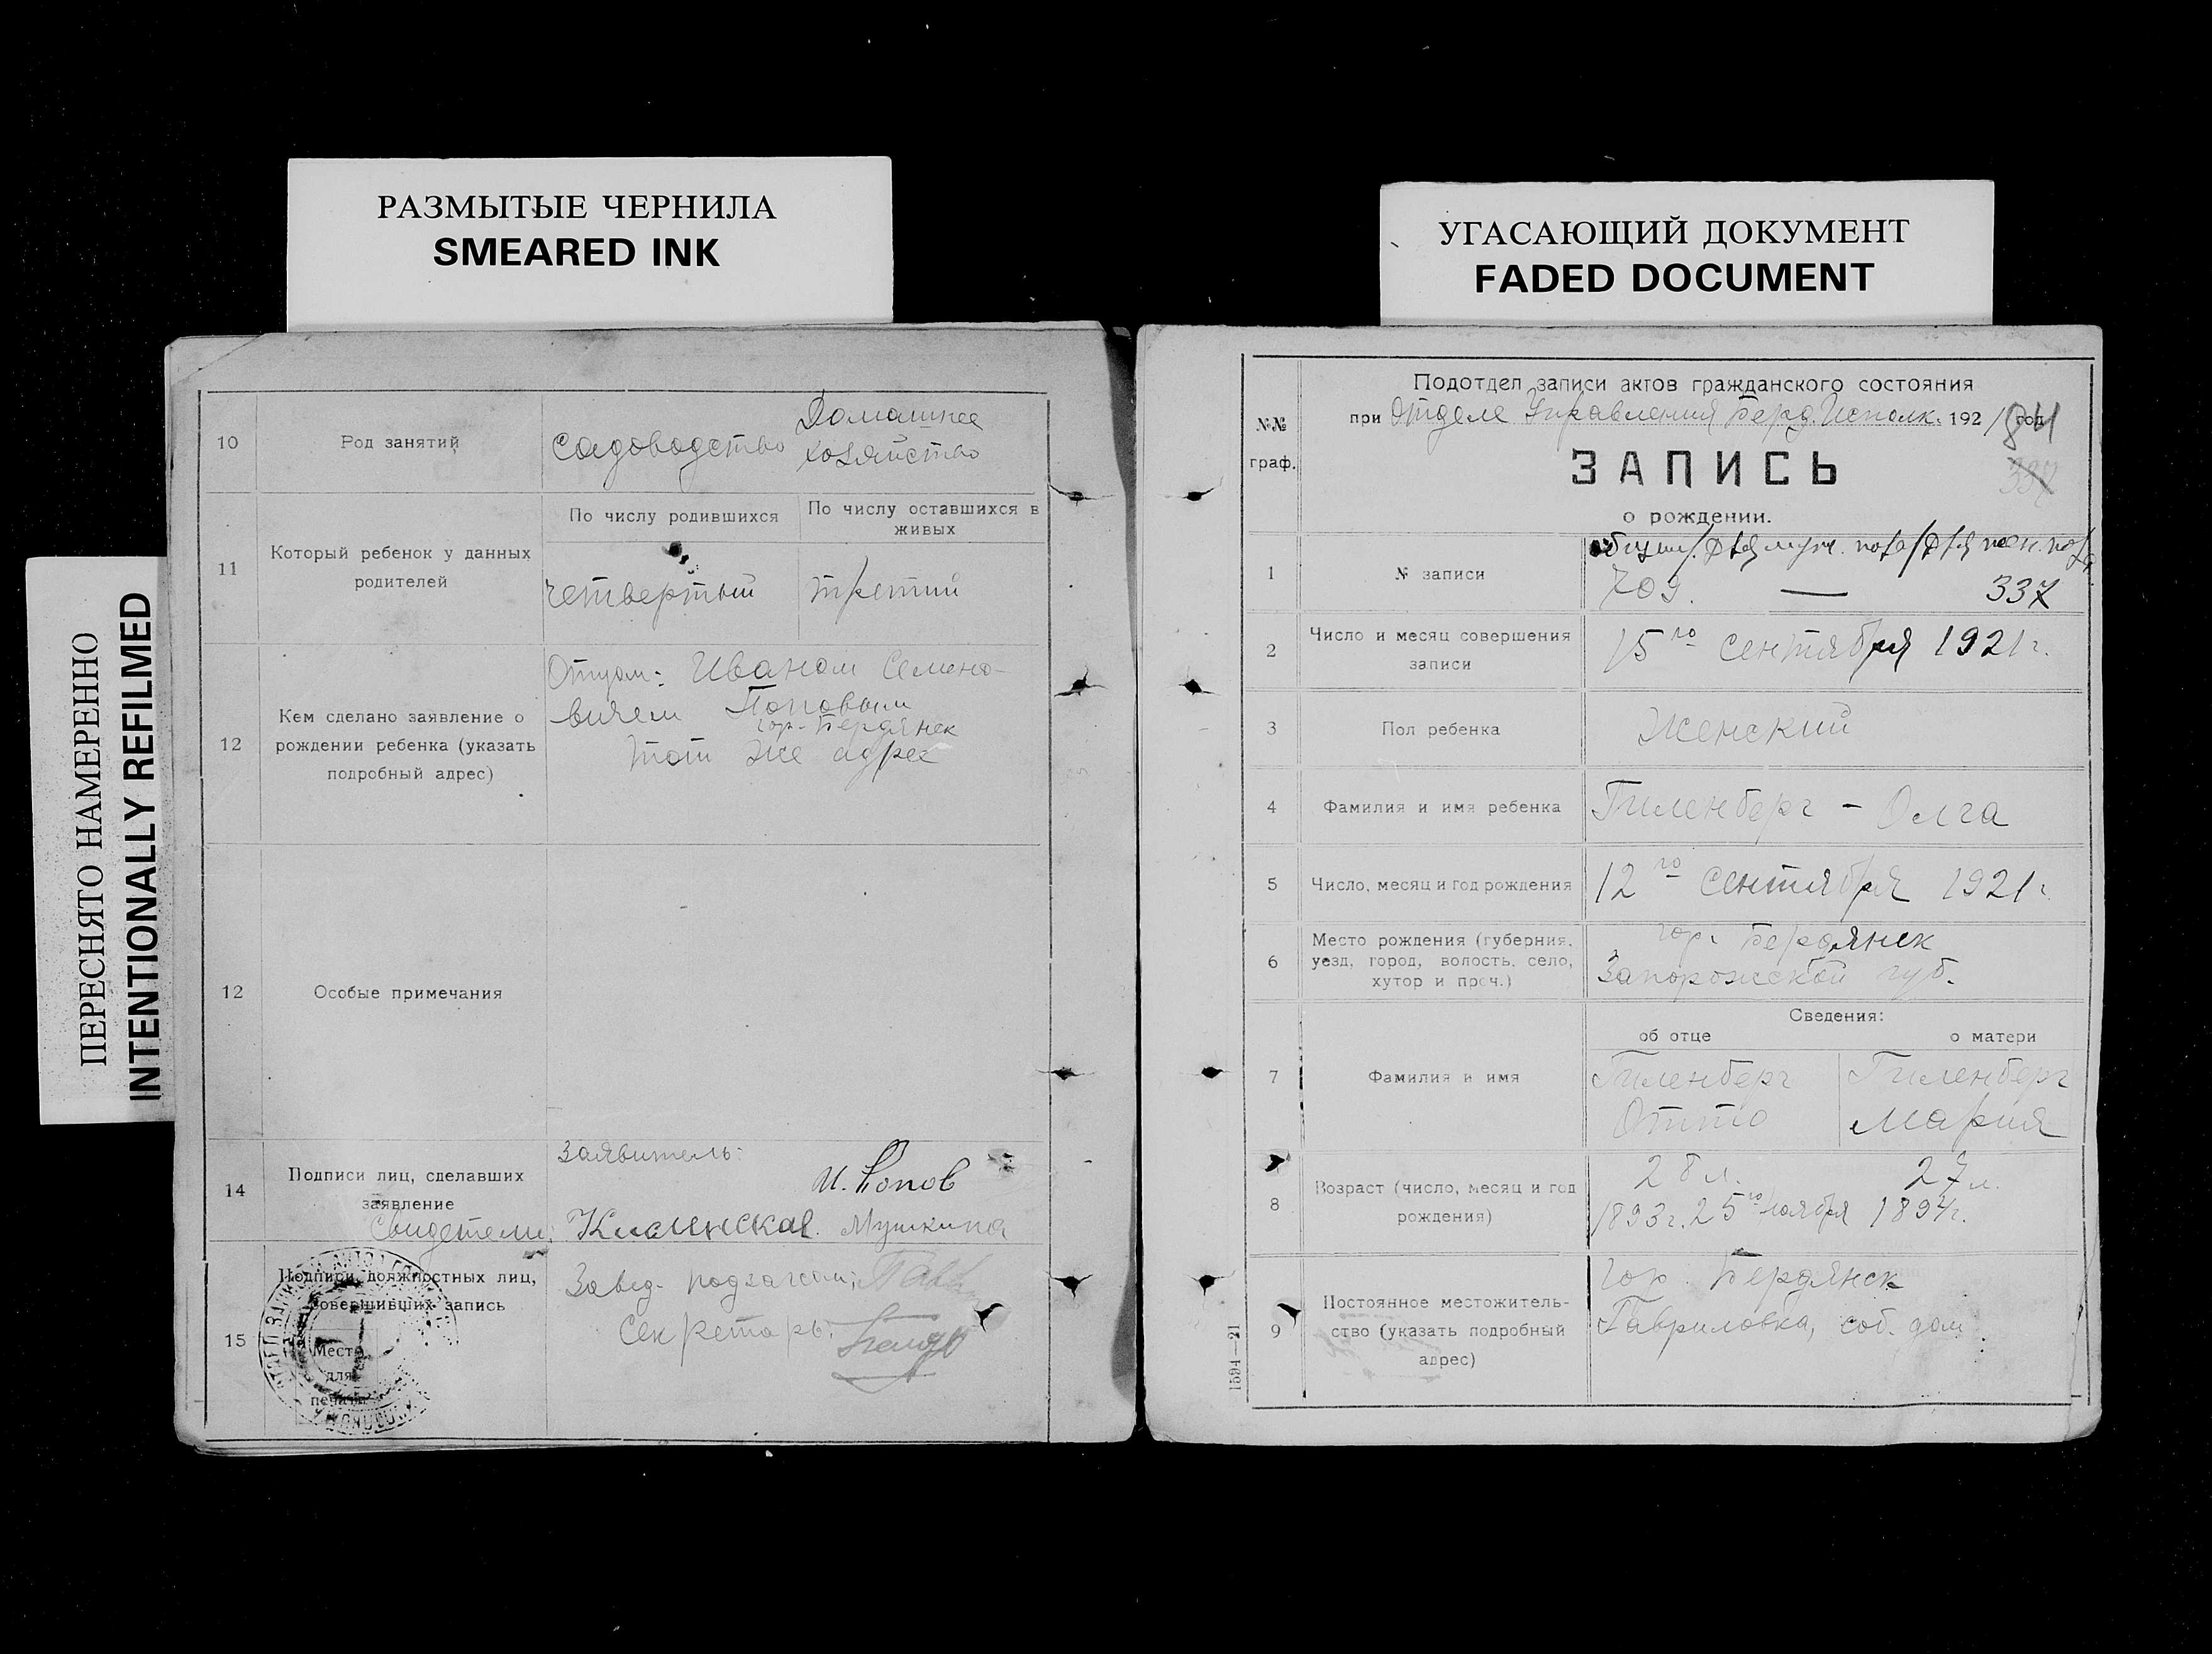 РАЗМЫТЫЕ ЧЕРНИЛА
SMEARED INK
УГАСАЮЩИЙ ДОКУМЕНТ
FADED DOCUMENT
ПЕРЕСНЯТО НАМЕРЕННО
INTENTIONALLY REFILMED
10 Род занятий садоводство Домашнее хозяйство
11 Который ребенок у данных родителей
По числу родившихся По числу оставшихся в живых
четвертый третий
12 Кем сделано заявление о рождении ребенка (указать подробный адрес)
Отцом: Иваном Семено-
вичем Поповым
гор. Бердянск
тот же адрес
12 Особые примечания
14 Подписи лиц, сделавших заявление
Заявитель:
И. Попов
Свидетели: Мушкина
15 Подписи должностных лиц, совершивших запись
Место
для
печати
Завед. подзагсом:
Секретарь:
№№
граф.
Подотдел записи актов гражданского состояния
при Отделе Управления Берд. Исполк. 1921 год
84
ЗАПИСЬ
337
о рождении.
1 № записи
общий/для муж. пола/для жен. пола
709. — 337
2 Число и месяц совершения записи
15го сентября 1921 г.
3 Пол ребенка Женский
4 Фамилия и имя ребенка Гиленберг - Олга
5 Число, месяц и год рождения 12го сентября 1921 г.
6 Место рождения (губерния, уезд, город, волость, село, хутор и проч.)
гор. Бердянск
Запорожской губ.
Сведения:
об отце о матери
7 Фамилия и имя
Гиленберг Гиленберг
Отто Мария
8 Возраст (число, месяц и год рождения)
28 л. 27 л.
1893 г. 25го ноября 1894 г.
9 Постоянное местожитель-
ство (указать подробный
адрес)
гор. Бердянск
Гавриловка, соб. дом
1594—21